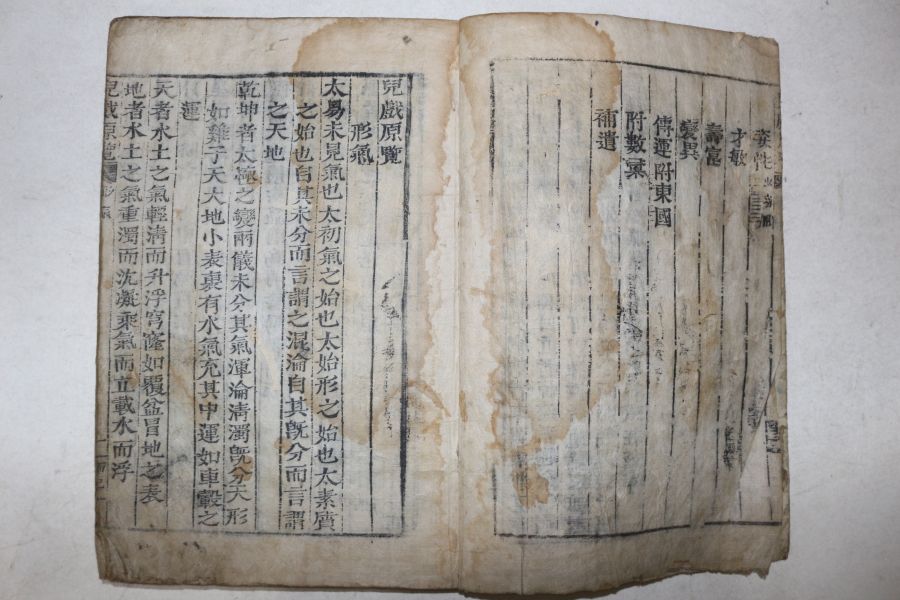 才敏
壽富
變異
傳運附東國
附數彙
補遺
兒戱原覽
形氣
太易未見氣也太初氣之始也太始形之始也太素質
之始也自其未分而言謂之混淪自其旣分而言謂
之天地
乾坤者太極之變兩儀未分其氣渾淪清濁旣分天形
如雞子天大地小表裏有水氣充其中運如車轂之
運
天者水土之氣輕清而升浮穹窿如覆盆冒地之表
地者水土之氣重濁而沈凝乘氣而立載水而浮
兒戱原覽